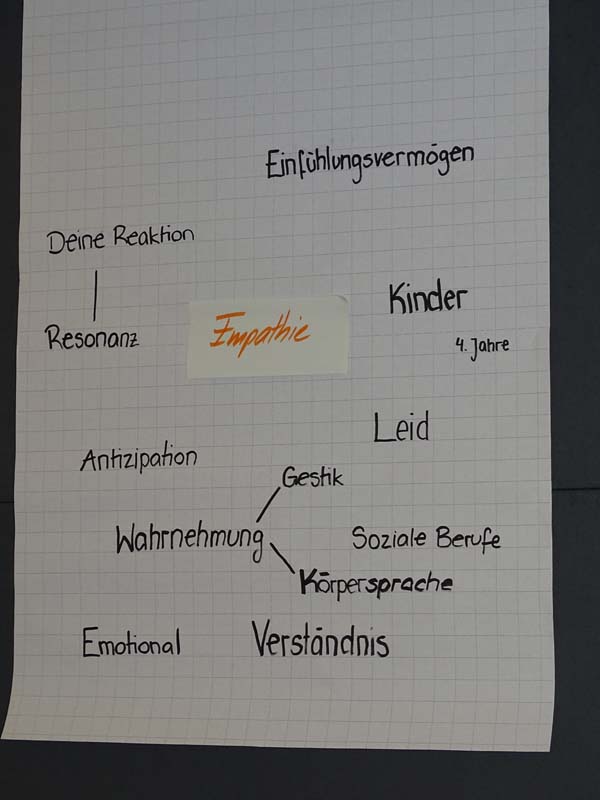 Einfühlungsvermögen
Deine Reaktion
Kinder
Empathie
Resonanz
4. Jahre
Leid
Antizipation
Gestik
Wahrnehmung
Soziale Berufe
Körpersprache
Emotional
Verständnis